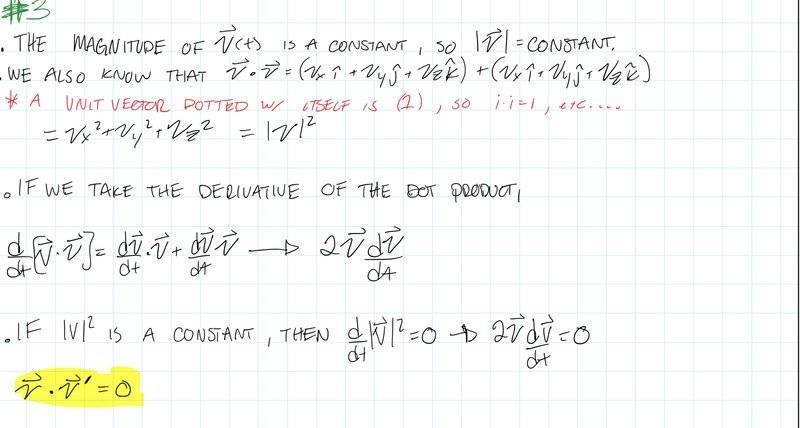 #3
. THE MAGNITUDE OF v⃗(t) IS A CONSTANT, SO |v⃗| = CONSTANT.
. WE ALSO KNOW THAT v⃗ · v⃗ = (vx î + vy ĵ + vz k̂) + (vx î + vy ĵ + vz k̂)
* A UNIT VECTOR DOTTED W/ ITSELF IS (1), SO i·i=1, etc....
= vx² + vy² + vz² = |v|²
. IF WE TAKE THE DERIVATIVE OF THE DOT PRODUCT,
d/dt [v⃗ · v⃗] = dv⃗/dt · v⃗ + dv⃗/dt v⃗ → 2v⃗ dv⃗/dt
. IF |v|² IS A CONSTANT, THEN d/dt |v⃗|² = 0 → 2v⃗ dv⃗/dt = 0
v⃗ · v⃗' = 0